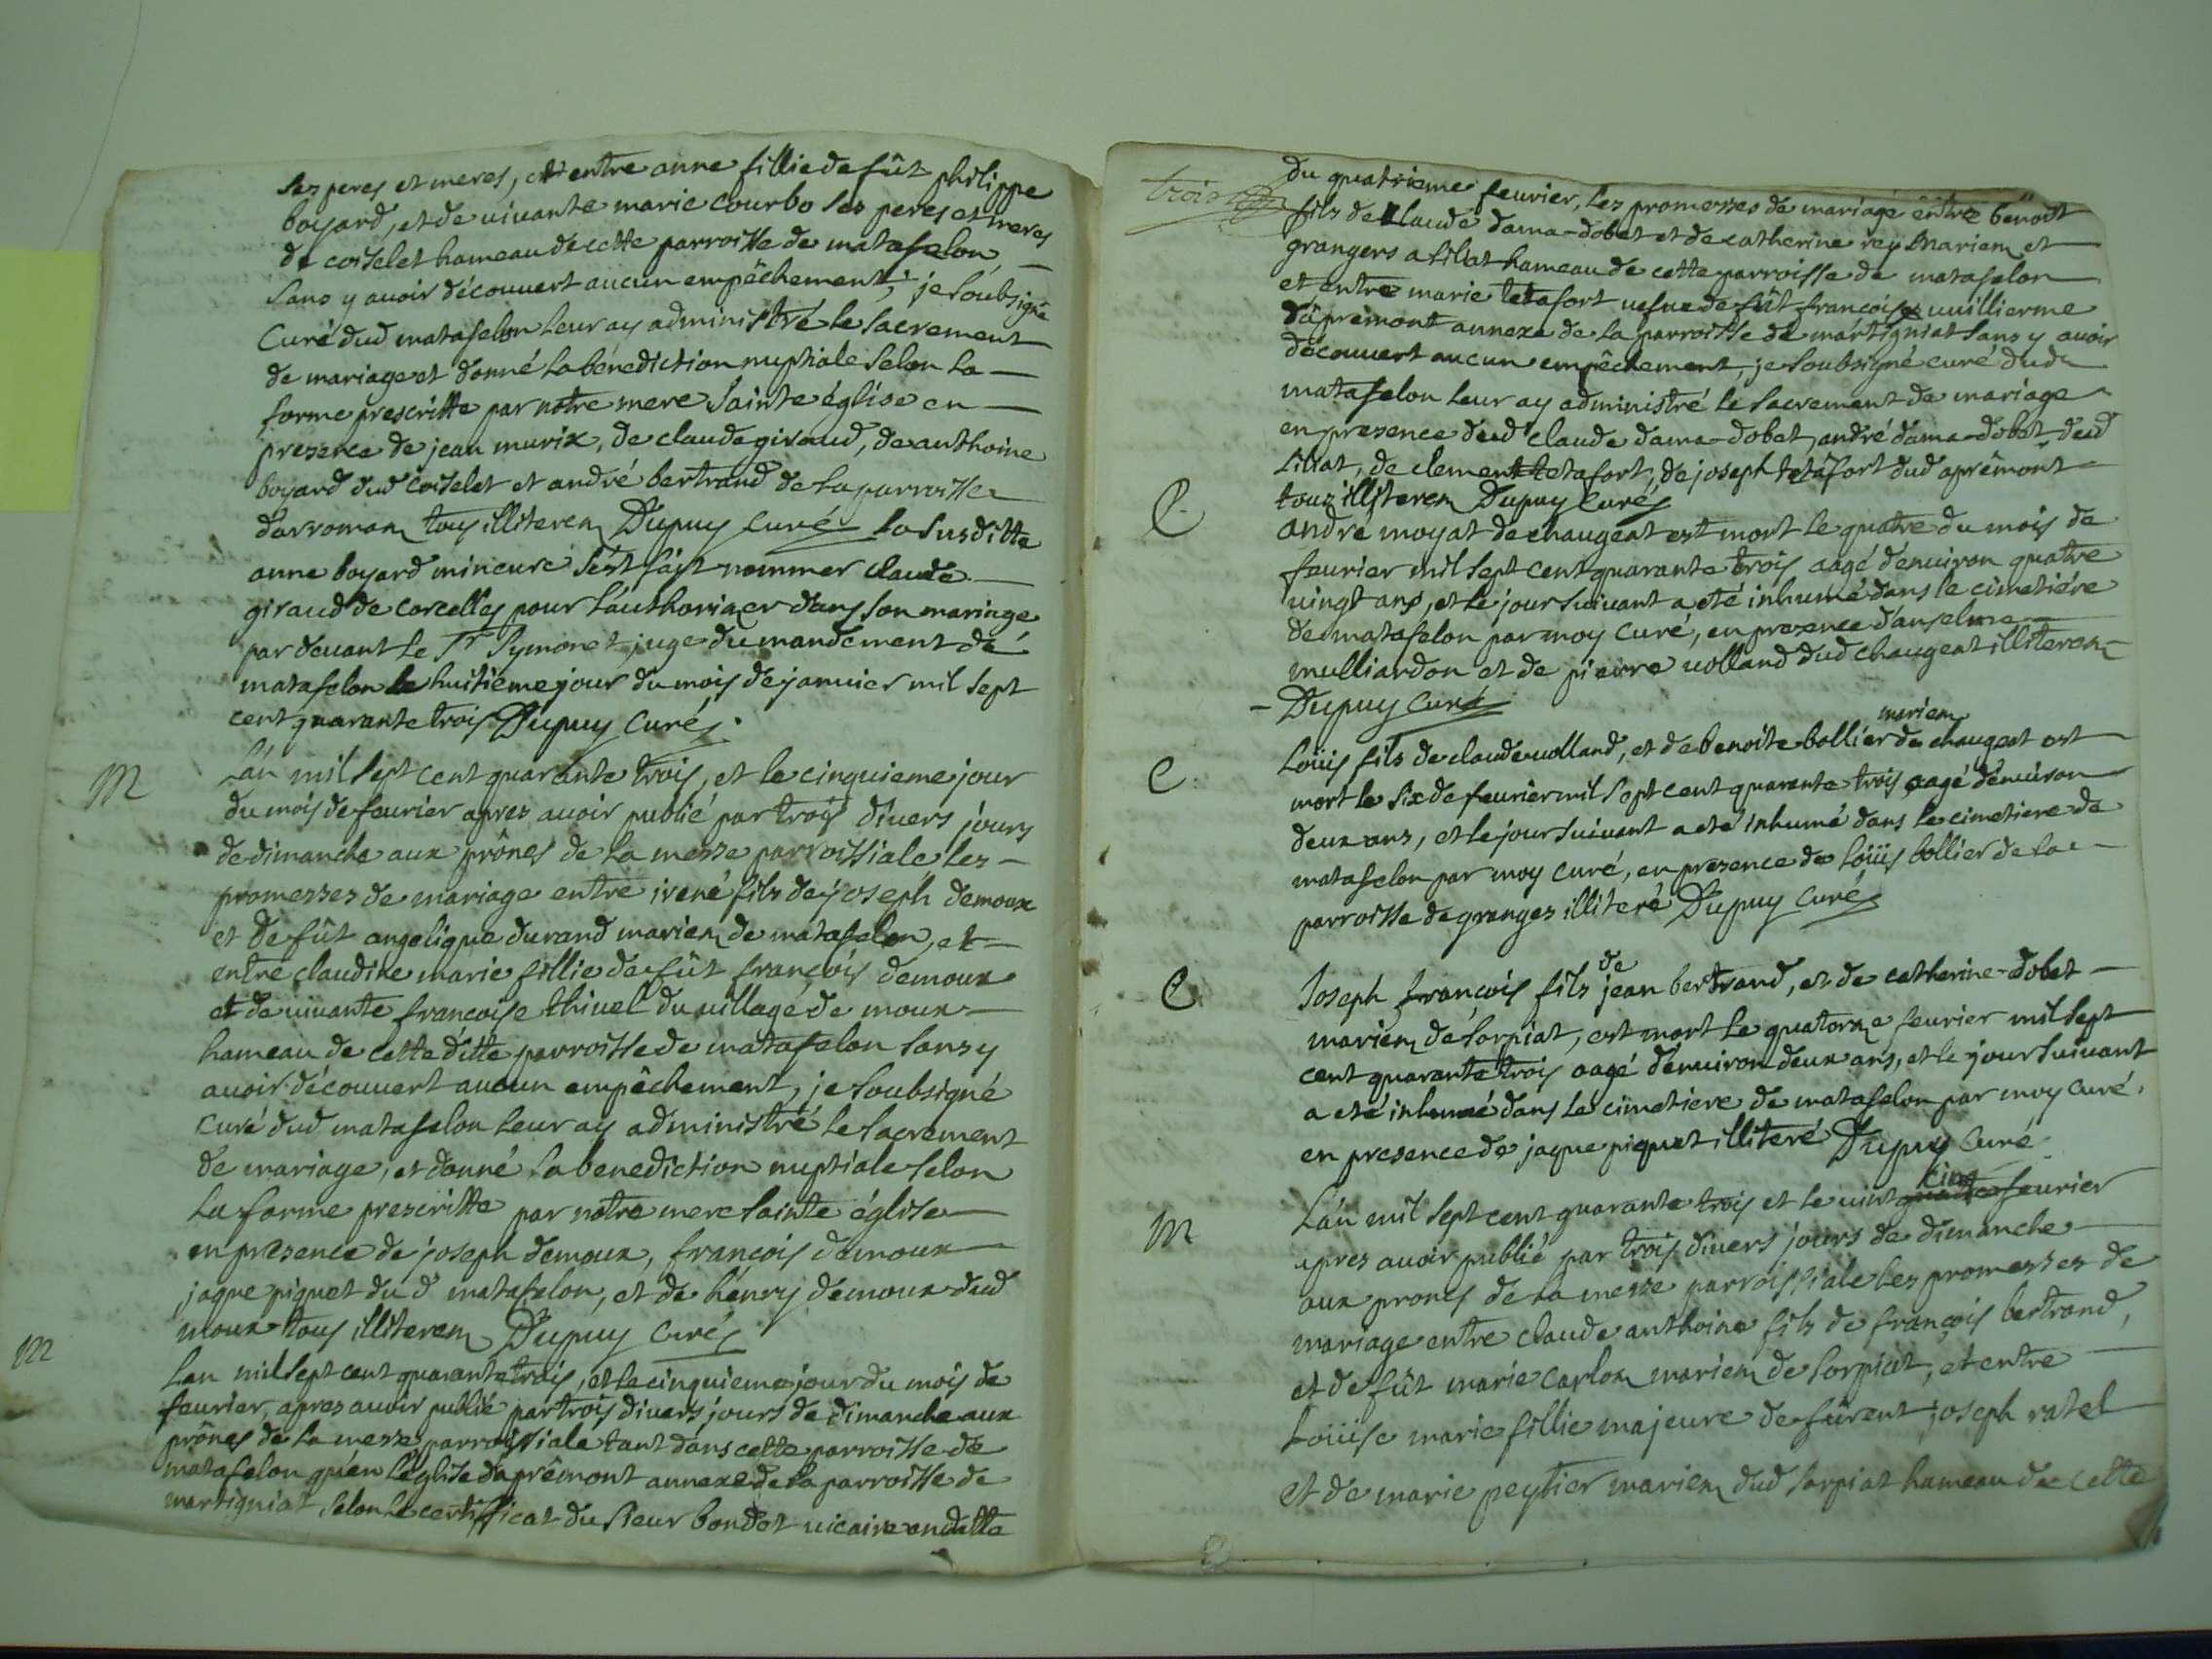 ses peres et meres, et entre anne fillie de fût philippe
boyard, et de vivante marie courbo ses peres et meres
de coiselet hameau de cette parroisse de matafelon,
sans y avoir découvert aucun empêchement, je soubsigné
Curé dud matafelon leur ay administré le sacrement
de mariage et donné la benediction nuptiale selon la
forme prescritte par notre mere sainte église en
presence de jean murix, de claude giraud, de anthoine
boyard dud coiselet et andré bertrand de la parroisse
darroman tous illiterem Dupuy Curé la susditte
anne boyard mineure s'ést fait nommer claude
giraud de corcelles pour l'áuthorizer dans son mariage
par devant le Sr Symonet juge du mandement de
matafelon le huitiéme jour du mois de janvier mil sept
cent quarante trois Dupuy Curé.
M L'án mil sept cent quarante trois, et le cinquieme jour
du mois de fevrier apres avoir publié par trois divers jours
de dimanche aux prônes de la messe parroissiale les
promesses de mariage entre irené fils de joseph demoux
et de fût angelique durand mariem de matafelon, et
entre claudine marie fillie de fût françois demoux
et de vivante francoise thivel du village de moux
hameau de cette ditte parroisse de matafelon sans y
avoir découvert aucun empêchement, je soubsigné
curé dud matafelon leur ay administré le sacrement
de mariage, et donné la benediction nuptiale selon
la forme prescritte par notre mere sainte église
en presence de joseph demoux, françois demoux
jaque piquet du d matafelon, et de henry demoux dud
moux tous illiterem Dupuy Curé
M Lan mil sept cent quarante trois, et le cinquieme jour du mois de
fevrier, apres avoir publié par trois divers jours de dimanche aux
prônes de la messe parroissiale tant dans cette parroisse de
matafelon qu'en l'église d'aprêmont annexe de la parroisse de
martigniat, selon le certifficat du sieur bondet vicaire en ditte
trois
du quatrieme fevrier, les promesses de mariage entre benoît
fils de claude dama-dobet et de catherine rey mariem et
grangers a siliat hameau de cette parroisse de matafelon
et entre marie tetafort vefue de fût françois vuillierme
d'âpremont annexe de la parroisse de martigniat sans y avoir
découvert aucun empêchement, je soubsigné curé dud
matafelon leur ay administré le sacrement de mariage
en presence dud claude dama-dobet, andré dama-dobet dud
siliat, de clement tetafort, de joseph tetafort dud aprêmont
tous illiterem Dupuy Curé
C. andré moyat de chaugeat est mort le quatre du mois de
fevrier mil sept cent quarante trois aagé d'environ quatre
vingt ans, et le jour suivant a eté inhumé dans le cimetiére
de matafelon par moy curé, en presence d'anselme
mulliardon et de pierre volland dud chaugeat illiterem
Dupuy Curé
mariem
C: Loüis fils de claude volland, et de benoite bollier de chaugeat est
mort le six de fevrier mil sept cent quarante trois aagé d'énviron
deux ans, et le jour suivant a eté inhumé dans le cimetiere de
matafelon par moy curé, en presence de loüis bollier de la
parroisse de granges illiteré Dupuy Curé
de
C. Joseph françois fils jean bertrand, et de catherine dobet
mariem de sorpiat, est mort le quatorze fevrier mil sept
cent quarante trois aagé d'environ deux ans, et le jour suivant
a eté inhumé dans le cimetiere de matafelon par moy curé,
en presence de jaque piquet illiteré Dupuy Curé
cinq
M L'án mil sept cent quarante trois et le vint quatre fevrier
apres avoir publié par trois divers jours de dimanche
aux prones de la messe parroissiale les promesses de
mariage entre claude anthoine fils de françois bertrand,
et de fût marie carlon mariem de sorpiat, et entre
Loüise marie fillie majeure de fûrent joseph ratel
et de marie peytier mariem dud sorpiat hameau de cette